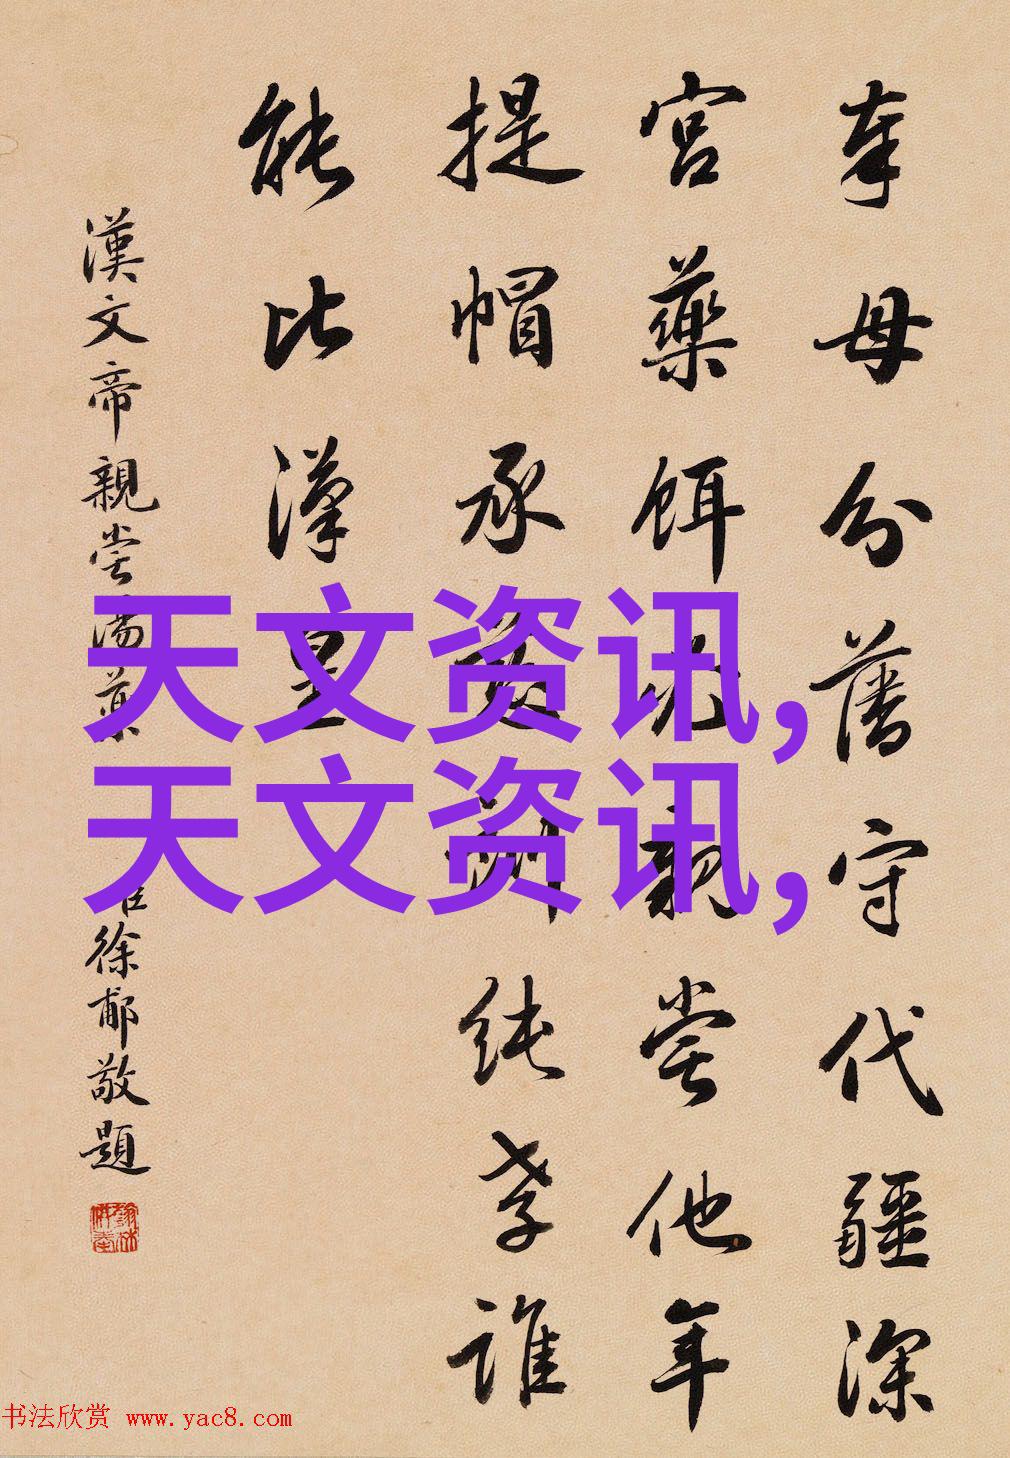 奉母分藩守代疆深
宮藥餌親嘗他年
提帽承純孝誰
能比漢皇
漢文帝親嘗湯藥
臣徐郙敬題
天文资讯,
天文资讯,
书法欣赏 www.yac8.com